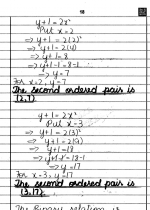 18
y+1 = 2x²
Put x=2
⇒ y+1 = 2(2)²
⇒ y+1 = 2(4)
⇒ y+1 = 8
⇒ y+1-1 = 8-1
⇒ y = 7
For x=2, y=7
The second ordered pair is
(2,7).
y+1 = 2x²
Put x=3
⇒ y+1 = 2(3)²
⇒ y+1 = 2(9)
⇒ y+1 = 18
⇒ y+1-1 = 18-1
⇒ y = 17
For x=3, y=17
The second ordered pair is
(3,17).
The Binary relation is